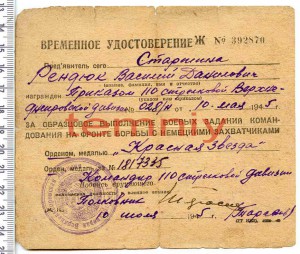 ВРЕМЕННОЕ УДОСТОВЕРЕНИЕ Ж № 392870
Пред'явитель сего Старшина
Рендюк Василий Данилович
(звание, фамилия, имя и отчество)
награжден Приказом 110 стрелковой Верхне-
днепровской дивизии 028/н от 10 мая 1945 г.
ЗА ОБРАЗЦОВОЕ ВЫПОЛНЕНИЕ БОЕВЫХ ЗАДАНИЙ КОМАН-
ДОВАНИЯ НА ФРОНТЕ БОРЬБЫ С НЕМЕЦКИМИ ЗАХВАТЧИКАМИ
Орденом, медалью "Красная Звезда"
Орден, медаль за № 1817325
Подпись вручившего
Командир 110 стрелковой дивизии
Полковник
10 июля 1945 г.